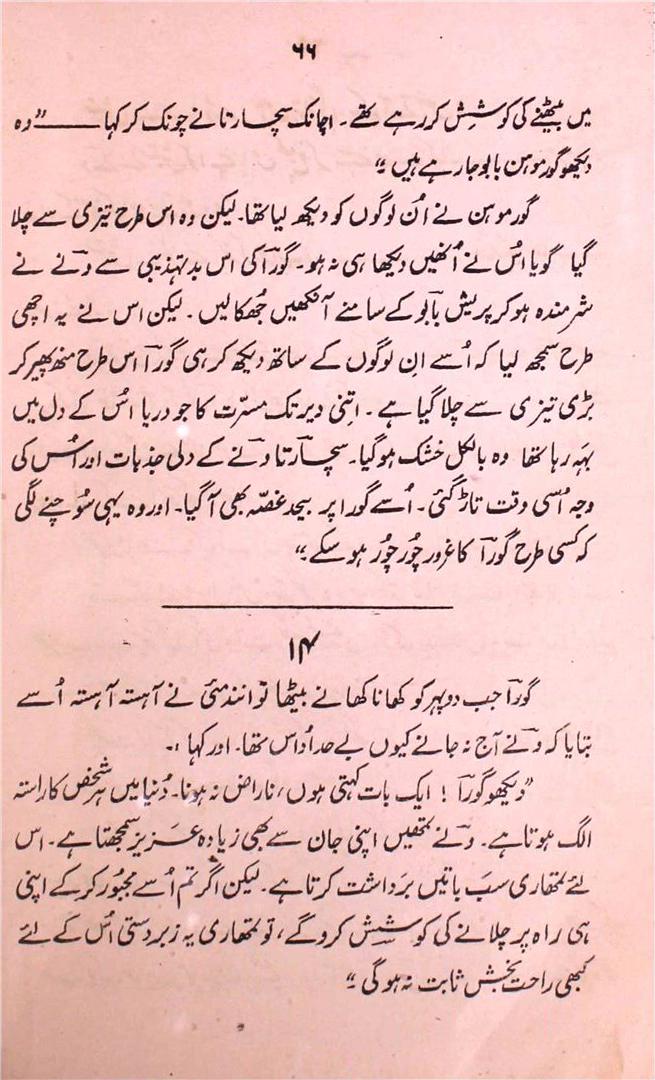 ۶۶
میں بیٹھنے کی کوشش کر رہے تھے۔ اچانک سچارتا نے چونک کر کہا ــــــ "وہ
دیکھو گور موہن بابو جا رہے ہیں"
گور موہن نے اُن لوگوں کو دیکھ لیا تھا۔ لیکن وہ اس طرح تیزی سے چلا
گیا گویا اُس نے اُنھیں دیکھا ہی نہ ہو۔ گورا کی اس بدتہذیبی سے ونے نے
شرمندہ ہو کر پریش بابو کے سامنے آنکھیں جُھکا لیں۔ لیکن اس نے یہ اچھی
طرح سمجھ لیا کہ اُسے اِن لوگوں کے ساتھ دیکھ کر ہی گورا اس طرح منھ پھیر کر
بڑی تیزی سے چلا گیا ہے۔ اتنی دیر تک مسرّت کا جو دریا اُس کے دل میں
بہہ رہا تھا وہ بالکل خشک ہو گیا۔ سچارتا ونے کے دلی جذبات اور اُس کی
وجہ اُسی وقت تاڑ گئی۔ اُسے گورا پر بیحد غصّہ بھی آ گیا۔ اور وہ یہی سُوچنے لگی
کہ کسی طرح گورا کا غرور چُور چُور ہو سکے"
۱۴
گورا جب دوپہر کو کھانا کھانے بیٹھا تو انند مئی نے آہستہ آہستہ اُسے
بتایا کہ ونے آج نہ جانے کیوں بے حد اُداس تھا۔ اور کہا :۔
"دیکھو گورا ! ایک بات کہتی ہوں، ناراض نہ ہونا۔ دُنیا میں ہر شخص کا راستہ
الگ ہوتا ہے۔ ونے تمھیں اپنی جان سے بھی زیادہ عزیز سمجھتا ہے۔ اس
لئے تمھاری سب باتیں برداشت کرتا ہے۔ لیکن اگر تم اُسے مجبور کر کے اپنی
ہی راہ پر چلانے کی کوشش کرو گے، تو تمھاری یہ زبردستی اُس کے لئے
کبھی راحت بخش ثابت نہ ہو گی"